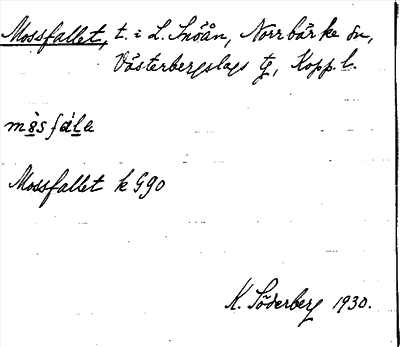 Mossfallet, t. i L. Snöån, Norrbärke sn,
Västerbergslags tg, Kopp. l.
mòsfála
Mossfallet k G90
K. Söderberg 1930.